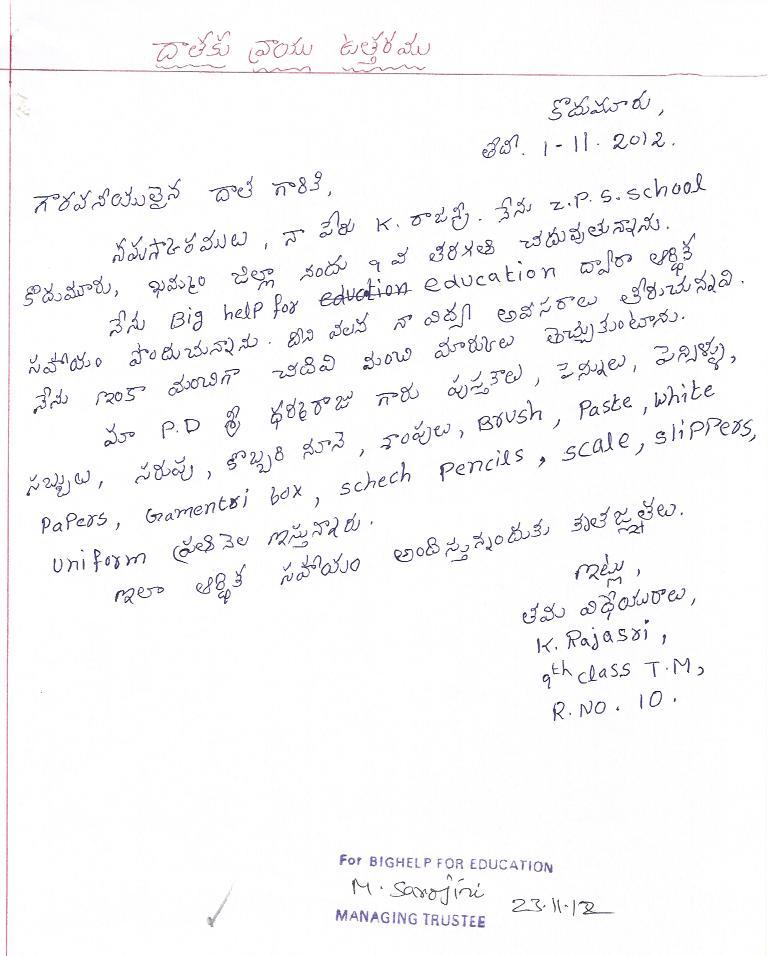 దాతకు వ్రాయు ఉత్తరము
కొదుమూరు,
తేది. 1-11. 2012.
గౌరవనీయులైన దాత గారికి,
నమస్కారములు, నా పేరు K. రాజశ్రీ. నేను Z.P.S.School
కొదుమూరు, ఖమ్మం జిల్లా నందు 9 వ తరగతి చదువుతున్నాను.
నేను Big help for education education ద్వారా ఆర్థిక
సహాయం పొందుచున్నాను. దీని వలన నా విద్యా అవసరాలు తీరుచున్నవి.
నేను ఇంకా మంచిగా చదివి మంచి మార్కులు తెచ్చుకుంటాను.
మా P.D శ్రీ ధర్మరాజు గారు పుస్తకాలు, పెన్నులు, పెన్సిళ్ళు,
సబ్బులు, సరుపు, కొబ్బరి నూనె, శాంపులు, Brush, Paste, White
Papers, Gamentri box, schech Pencils, scale, slippers,
uniform ప్రతి నెల ఇస్తున్నారు.
ఇలా ఆర్థిక సహాయం అందిస్తున్నందుకు కృతజ్ఞతలు.
ఇట్లు,
తమ విధేయురాలు,
K. Rajasri,
9th class T.M,
R.NO. 10.
For BIGHELP FOR EDUCATION
M. Sarojini
23.11.12
MANAGING TRUSTEE